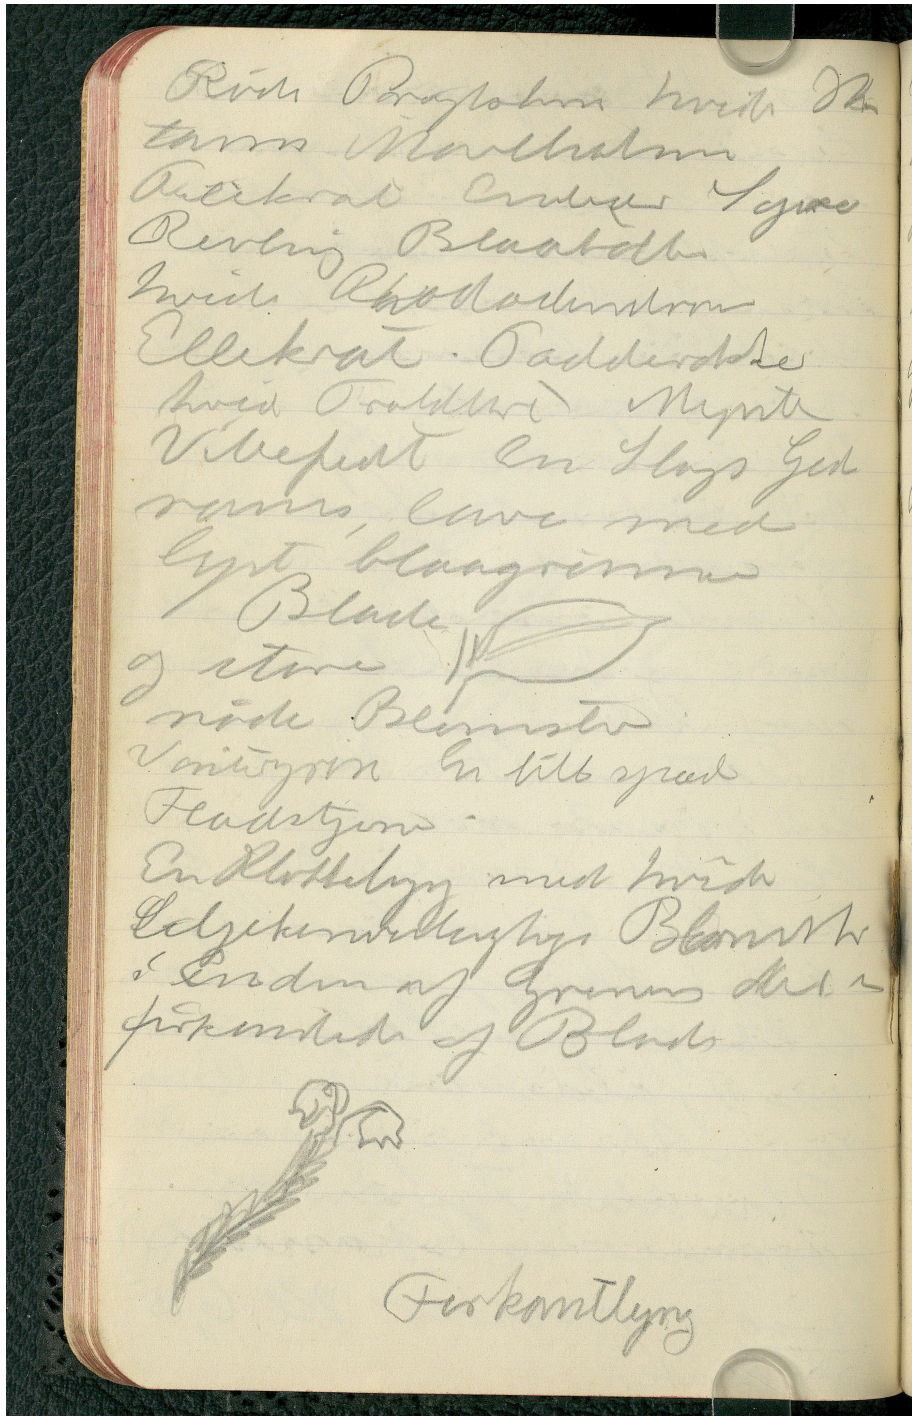 Røde Pragtstjerne hvide
Pilekrat Enebær
Revling Blaabølle
hvide Rhododendron
Ellekrat. Padderokke
hvid Troldurt Myrte
Vibefedt En Slags Ged
rams, lave med
lyst blaagrønne
Blade
og store
røde Blomster
Vintergrøn En lille spæd
Fladstjerne.
En Klokkelyng med hvide
Blomster
i Enden af Grenene
firkantede af Blade
Firkantlyng